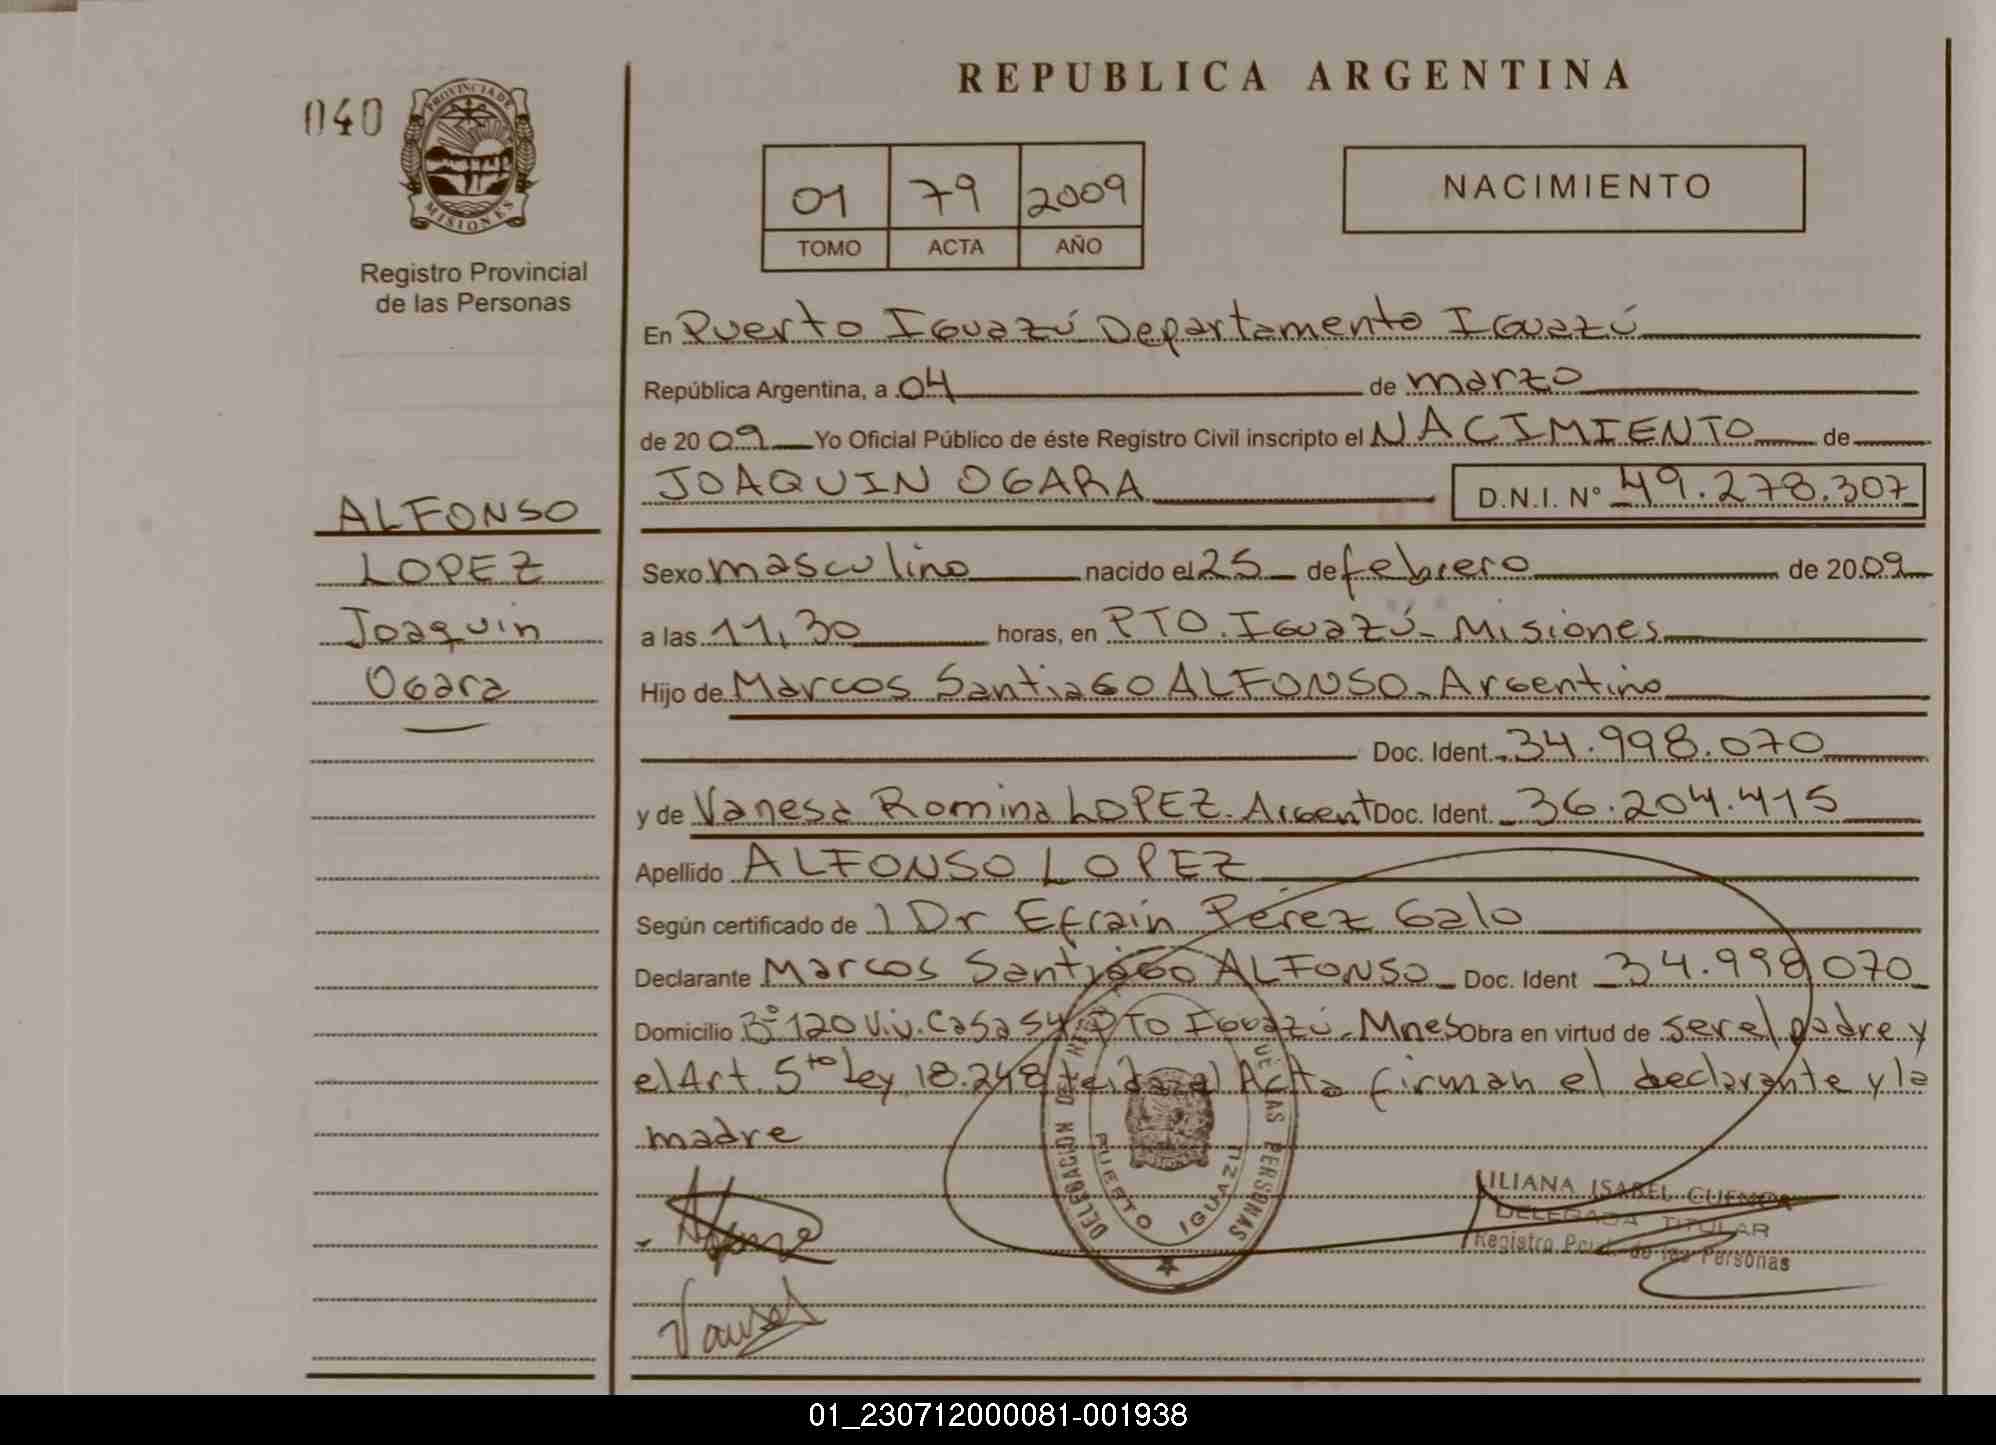 REPUBLICA ARGENTINA
040
PROVINCIA DE
MISIONES
Registro Provincial
de las Personas
01 79 2009
TOMO ACTA AÑO
NACIMIENTO
En Puerto Iguazú Departamento Iguazú
República Argentina, a 04 de marzo
de 20 09 Yo Oficial Público de éste Registro Civil inscripto el NACIMIENTO de
JOAQUIN OGARA D.N.I. N° 49.278.307
ALFONSO
LOPEZ
Joaquin
Ogara
Sexo masculino nacido el 25 de febrero de 20 09
a las 11,30 horas, en PTO. Iguazú - Misiones
Hijo de Marcos Santiago ALFONSO - Argentino
Doc. Ident. 34.998.070
y de Vanesa Romina LOPEZ - Argent Doc. Ident. 36.204.415
Apellido ALFONSO LOPEZ
Según certificado de Dr Efraín Pérez Galo
Declarante Marcos Santiago ALFONSO Doc. Ident 34.998.070
Domicilio B° 120 Viv. Casa 54 PTO Iguazú - Mnes Obra en virtud de ser el padre y
el Art. 5to Ley 18.248 Leida el Acta firman el declarante y la
madre
DELEGACION DE LAS PERSONAS
PUERTO IGUAZU
LILIANA ISABEL CUENCA
DELEGADA TITULAR
Registro Prov. de las Personas
01_230712000081-001938